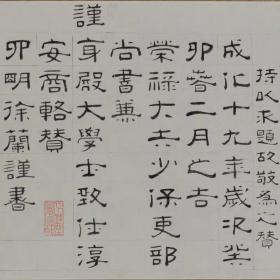 持以求題故敬為之贊
成化十九年歲次癸
卯春二月之吉
榮祿大夫少保吏部
尚書兼
謹身殿大學士致仕淳
安商輅贊
四明徐蘭謹書